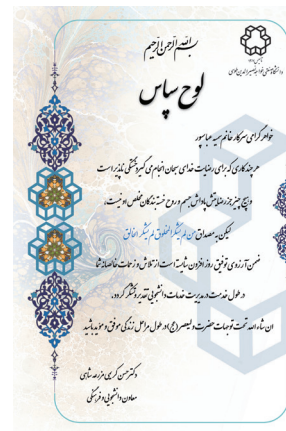 بسم الله الرحمن الرحیم
دانشگاه صنعتی خواجه نصیرالدین طوسی
لوح سپاس
خواهر گرامی سرکار خانم سمیه عباسپور
هر چند کاری که برای رضایت خدای سبحان انجام می گیرد خستگی ناپذیر است
و هیچ چیز جز رضایتش پاداش جسم و روح خسته بندگان مخلص او نیست،
لیکن به مصداق من لم یشکر المخلوق لم یشکر الخالق
ضمن آرزوی توفیق روز افزون شایسته است از تلاش و زحمات خالصانه شما
در طول خدمت در مدیریت خدمات دانشجویی تقدیر و تشکر گردد.
ان شاء الله تحت توجهات حضرت ولیعصر (عج) در طول مراحل زندگی موفق و موید باشید
دکتر حسن کریمی مزرعه شاهی
معاون دانشجویی و فرهنگی